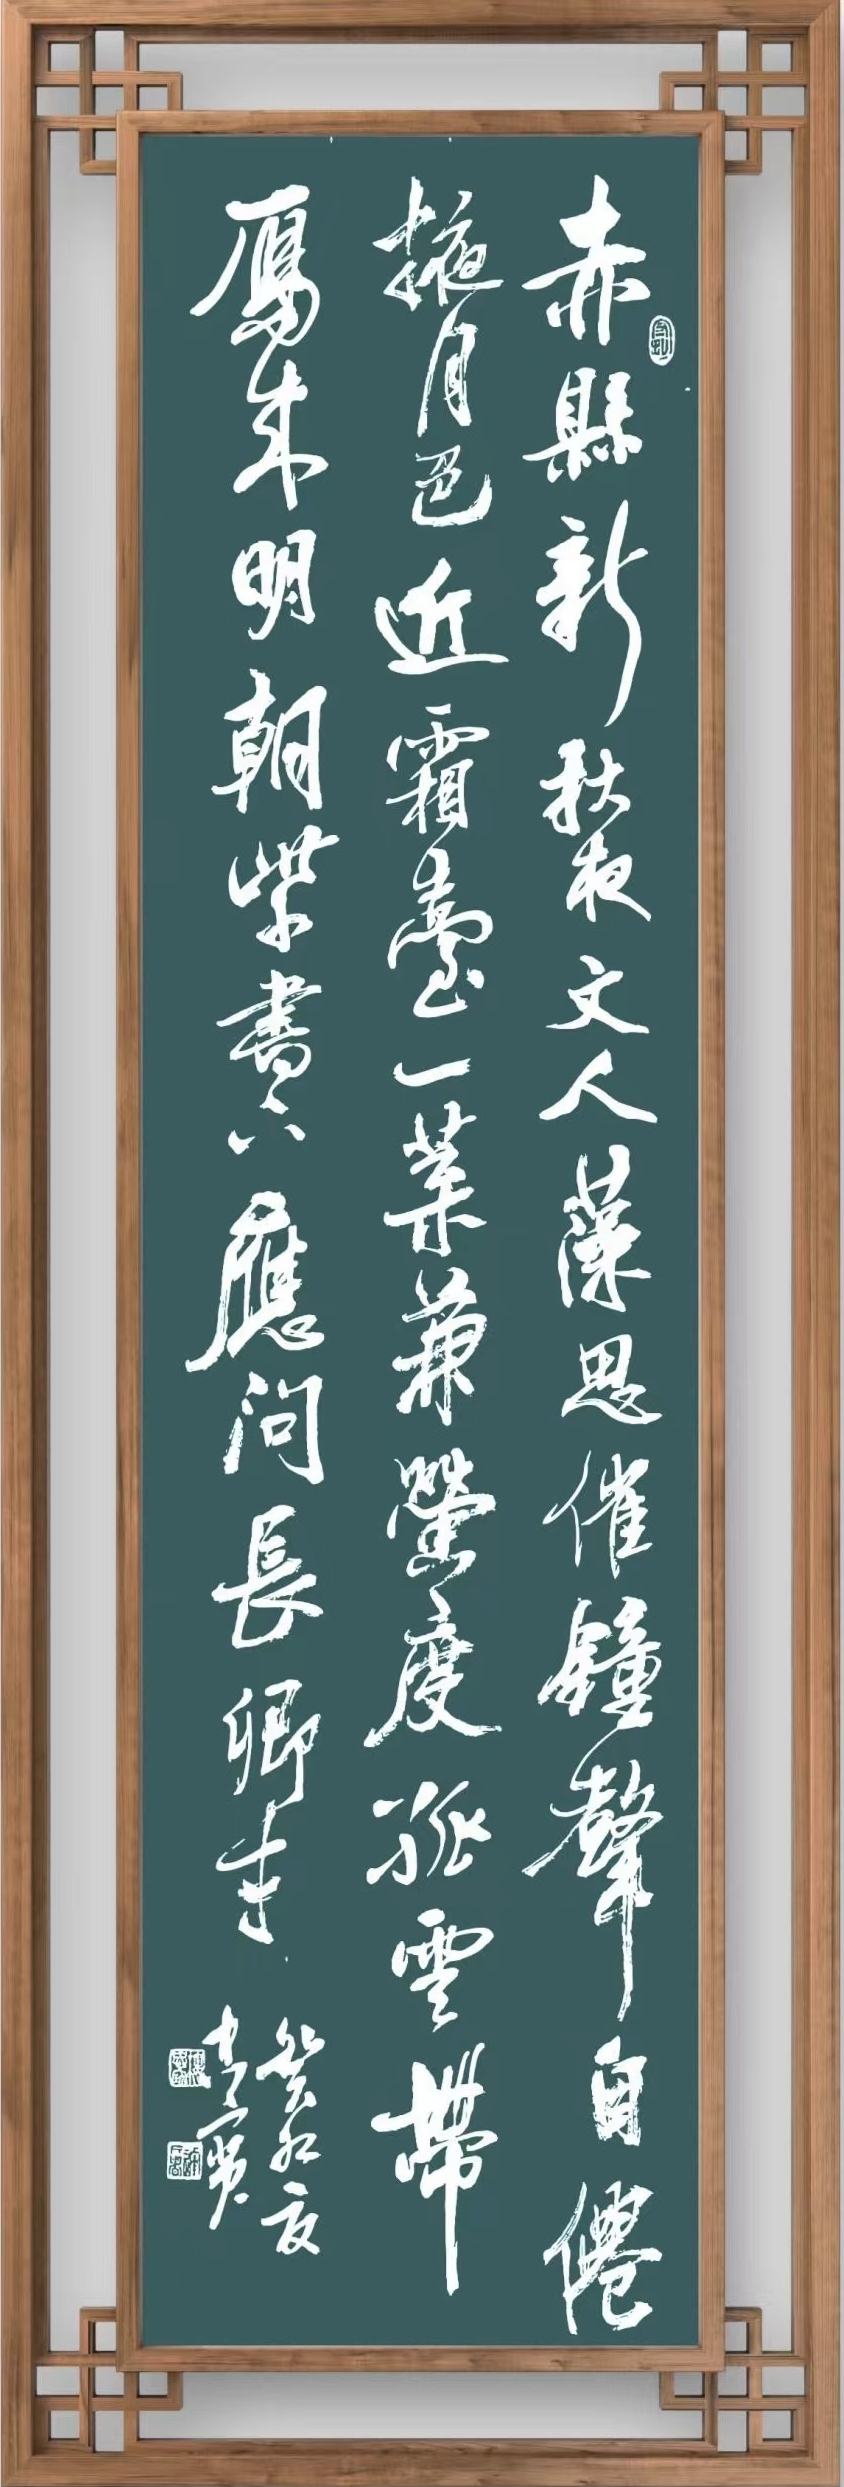 赤縣新秋夜文人藻思催鐘聲自僊
掖月色近霜臺一葉兼螢度孤雲帶
鴈來明朝紫書下應問長卿才
癸卯夏